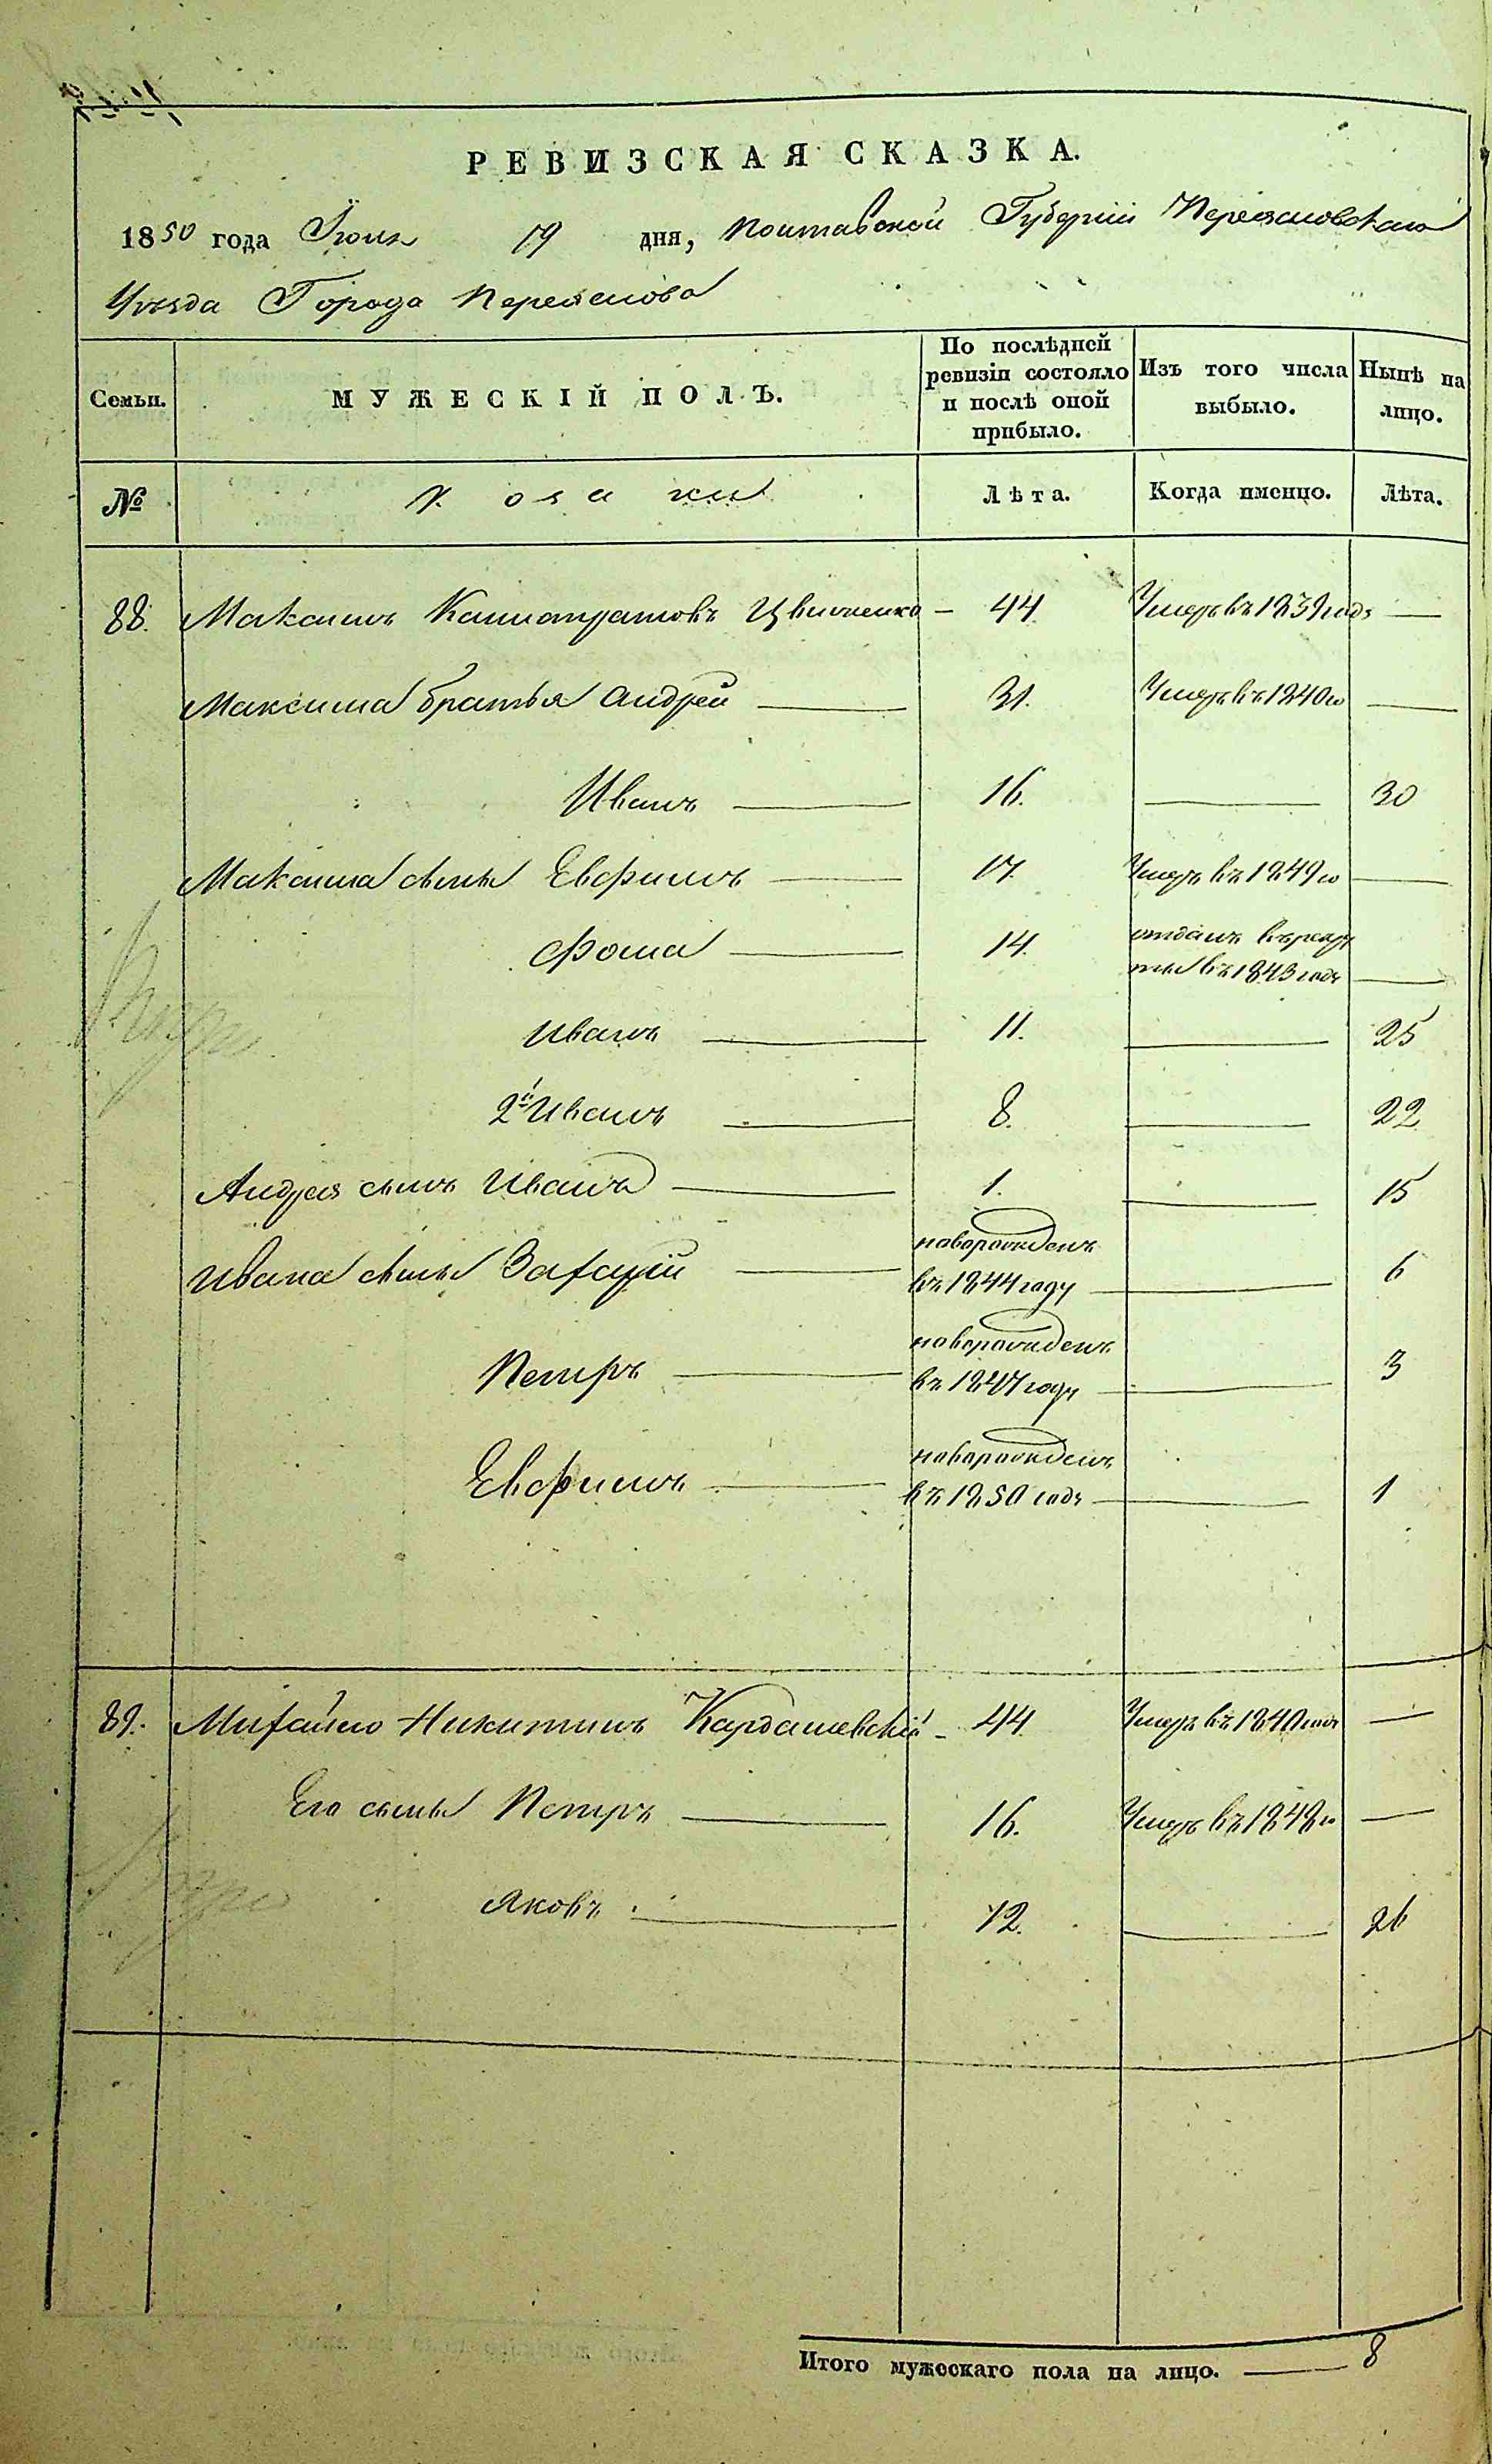 РЕВИЗСКАЯ СКАЗКА.
1850 года Іюня 19 дня, Полтавской Губерніи Переяславскаго
Уезда Города Переяслова
Семьи.
МУЖЕСКІЙ ПОЛЪ.
По послѣдней ревизіи состояло и послѣ оной прибыло.
Изъ того числа выбыло.
Нынѣ на лицо.
№ Козаки Лѣта. Когда именно. Лѣта.
88. Максимъ Калистратовъ — 44. Умеръ въ 1839 годѣ —
Максима братья Андрей — 31. Умеръ въ 1840 го —
Иванъ — 16. — 30
Максима сыны Евфимъ — 17. Умеръ въ 1849 го —
Фома — 14. отданъ въ рекру
ты въ 1843 годѣ —
Иванъ — 11. — 25
2й Иванъ — 8. — 22
Андрея сынъ Иванъ — 1. — 15
Ивана сыны Захарій — новорожденъ
въ 1844 году — 6
Петръ — новорожденъ
въ 1847 году — 3
Евфимъ — новорожденъ
въ 1850 годѣ — 1
89. Михайло Никитинъ Кардашевскій — 44. Умеръ въ 1840 годѣ —
Его сыны Петръ — 16. Умеръ въ 1848 го —
Яковъ — 12. — 26
Итого мужескаго пола на лицо. — 8